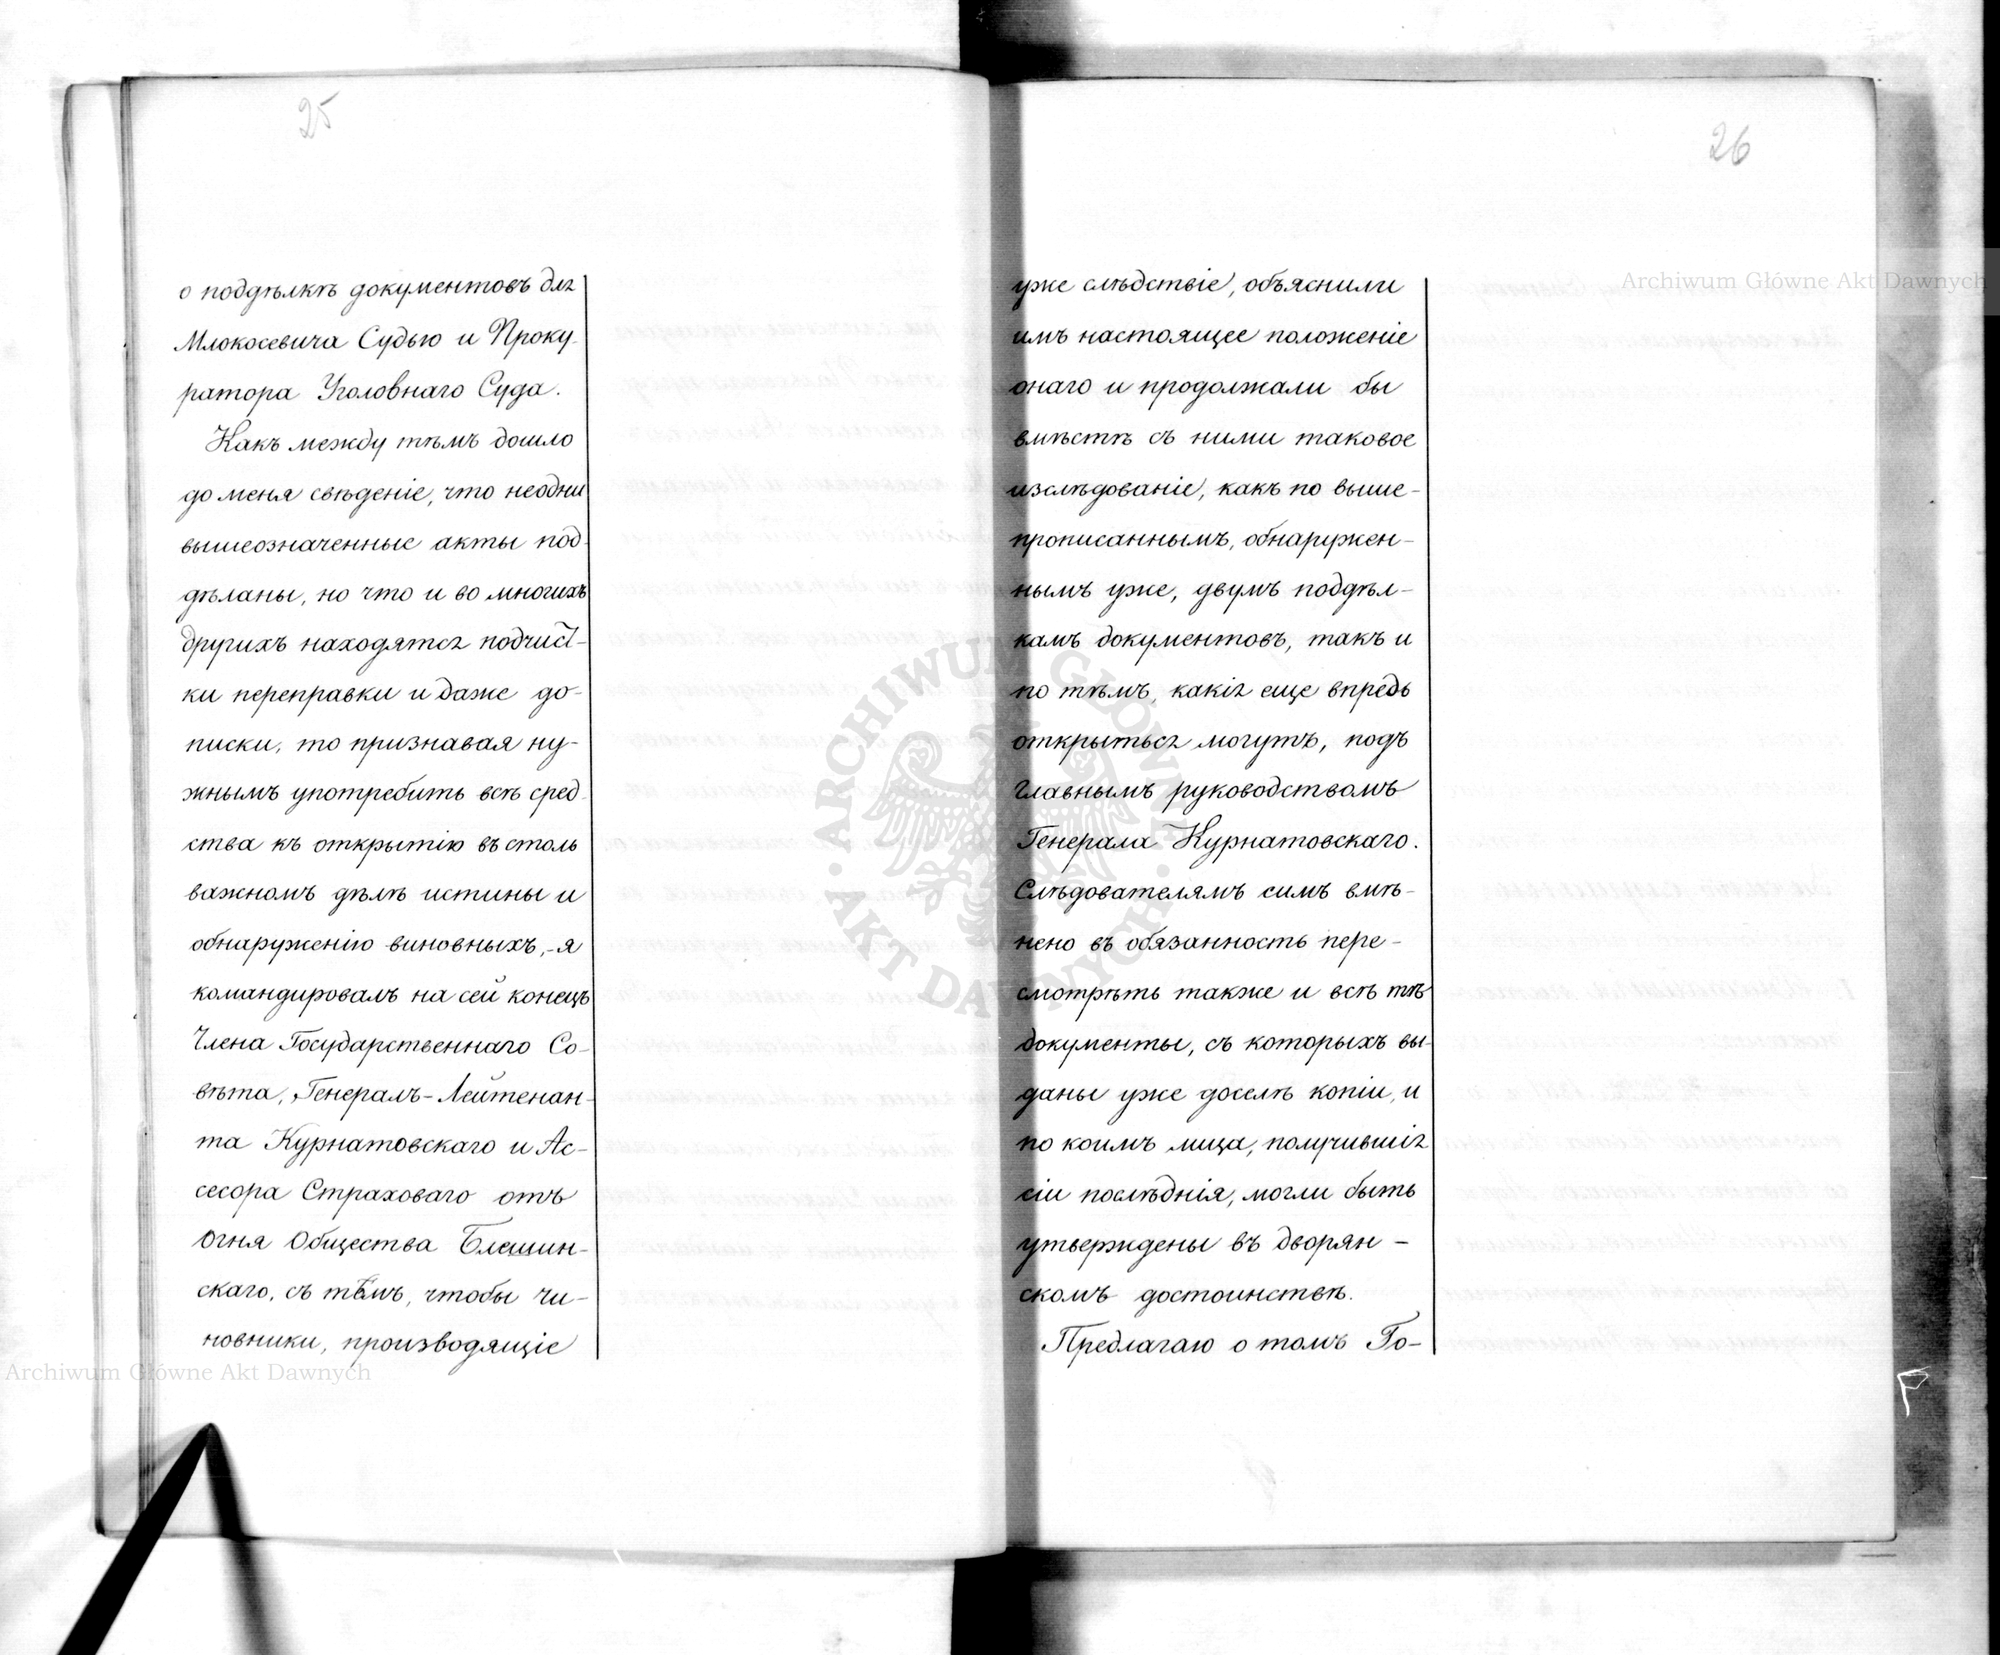 25
о поддѣлкѣ документовъ для
Млокосевича Судью и Проку-
ратора Уголовнаго Суда.
Какъ между тѣмъ дошло
до меня свѣденіе, что неодни
вышеозначенные акты под-
дѣланы, но что и во многихъ
другихъ находятся подчист-
ки переправки и даже до-
писки, то признавая ну-
жнымъ употребить всѣ сред-
ства къ открытію въ столь
важномъ дѣлѣ истины и
обнаруженію виновныхъ,-я
командировалъ на сей конецъ
Члена Государственнаго Со-
вѣта, Генералъ-Лейтенан-
та Курнатовскаго и Ас-
сесора Страховаго отъ
огня Общества Блешин-
скаго, съ тѣмъ, чтобы чи-
новники, производящіе
26
уже слѣдствіе, объяснили
имъ настоящее положеніе
онаго и продолжали бы
вмѣстѣ съ ними таковое
изслѣдованіе, какъ по выше-
прописаннымъ, обнаружен-
нымъ уже, двумъ поддѣл-
камъ документовъ, такъ и
по тѣмъ, какія еще впредь
открыться могутъ, подъ
главнымъ руководствомъ
Генерала Курнатовскаго.
Слѣдователямъ симъ вмѣ-
нено въ обязанность пере-
смотрѣть также и всѣ тѣ
документы, съ которыхъ вы-
даны уже доселѣ копіи, и
по коимъ лица, получившія
сіи послѣднія, могли быть
утверждены въ дворян-
скомъ достоинствѣ.
Предлагаю о томъ Го-
Archiwum Główne Akt Dawnych
ARCHIWUM GŁÓWNE · AKT DAWNYCH ·
Archiwum Główne Akt Dawnych